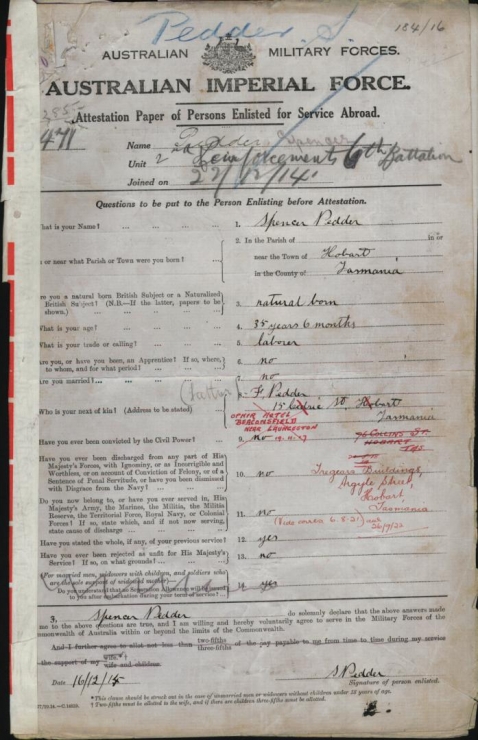 Pedder. S.
184/16
AUSTRALIAN MILITARY FORCES.
AUSTRALIAN IMPERIAL FORCE.
Attestation Paper of Persons Enlisted for Service Abroad.
471
Name Pedder Spencer
Unit 2nd Reinforcements 6th Battalion
Joined on 22/12/14.
Questions to be put to the Person Enlisting before Attestation.
hat is your Name? ... ... ... 1. Spencer Pedder
2. In the Parish of in or
n or near what Parish or Town were you born? ... near the Town of Hobart
in the County of Tasmania
re you a natural born British Subject or a Naturalised
British Subject? (N.B.—If the latter, papers to be
shown.) ... ... 3. natural born
What is your age? ... ... 4. 35 years 6 months
What is your trade or calling? ... ... 5. laborer
Are you, or have you been, an Apprentice? If so, where,
to whom, and for what period? ... 6. no
Are you married? ... 7. no
(father) F. Pedder
Who is your next of kin? (Address to be stated) ... 15 St. Hobart
Tasmania
OPHIR HOTEL
BEACONSFIELD
NEAR LAUNCESTON
Have you ever been convicted by the Civil Power? ... 9. no
HOBART
TAS
Have you ever been discharged from any part of His
Majesty's Forces, with Ignominy, or as Incorrigible and
Worthless, or on account of Conviction of Felony, or of a
Sentence of Penal Servitude, or have you been dismissed
with Disgrace from the Navy? ... 10. no
Buildings,
Argyle Street,
Hobart,
Tasmania
Do you now belong to, or have you ever served in, His
Majesty's Army, the Marines, the Militia, the Militia
Reserve, the Territorial Force, Royal Navy, or Colonial
Forces? If so, state which, and if not now serving,
state cause of discharge ... 11. no
Have you stated the whole, if any, of your previous service? 12. yes
Have you ever been rejected as unfit for His Majesty's
Service? If so, on what grounds? ... 13. no
(For married men, widowers with children, and soldiers who
are the sole support of widowed mother—
Do you understand that no Separation Allowance will be issued
to you after embarkation during your term of service? ... 14. yes
3. Spencer Pedder do solemnly declare that the above answers made
me to the above questions are true, and I am willing and hereby voluntarily agree to serve in the Military Forces of the
monwealth of Australia within or beyond the limits of the Commonwealth.
And I further agree to allot not less than two-fifths three-fifths of the pay payable to me from time to time during my service
the support of my wife.* wife and children.
Date 16/12/14
S Pedder
Signature of person enlisted.
* This clause should be struck out in the case of unmarried men or widowers without children under 18 years of age.
† Two-fifths must be allotted to the wife, and if there are children three-fifths must be allotted.